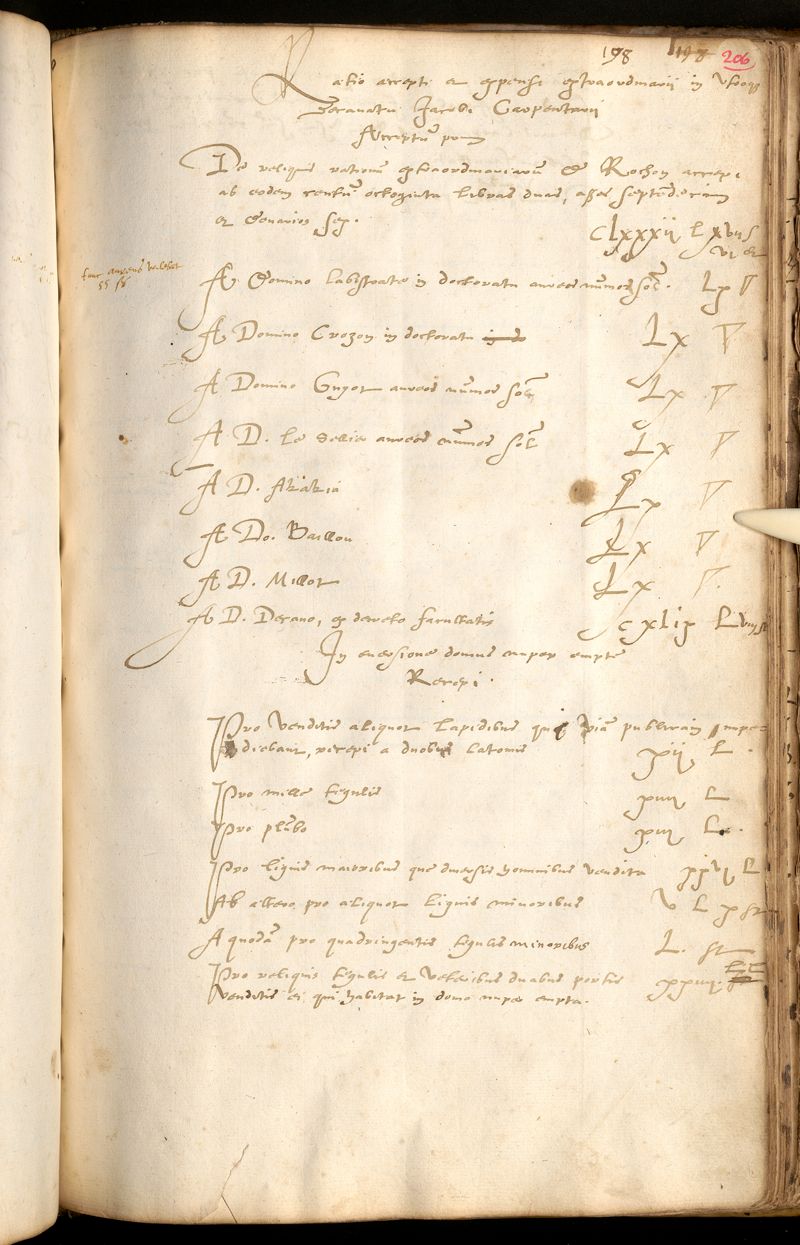 198 198 206
Ratio accepti et expensi extraordinarii in utroque
Decanatu Jacobi Carpentarii
Acceptū primū
De reliquis rationū extraordinariarū D. Rochon accepi
ab eodem centū octoginta libras duas, asses septendecim
et denarios sex.
clxxxii L xvii s
vi d
tunc aureus valebat
55 ss
A Domino Labistrate in doctoratu aureos nūmos sol. Lx ▽
A Domino Crozon in doctoratu Lx ▽
A Domino Guyot aureos nūmos sol Lx ▽
A D. le aureos nūmos sol Lx ▽
A D. Akakia Lx ▽
A Do. Baillou Lx ▽
A D. Millot Lx ▽
A D. Decano, ex decreto facultatis cxlix L
In eversione domus nuper emptę
Recepi.
Pro venditis aliquot lapidibus qui viā publicam impe
diebant, recepi a duobus latomis xii L.
Pro mille tegulis L
Pro plūbo L.
Pro lignis maioribus que diversis hominibus vendita xxvi L
Ab altero pro aliquot lignis minoribus v L x st
A quodā pro quadringentis tegulis minoribus L. st
Pro reliquis tegulis et veteribus duabus portis
venditis ei qui habitat in domo nuper empta.